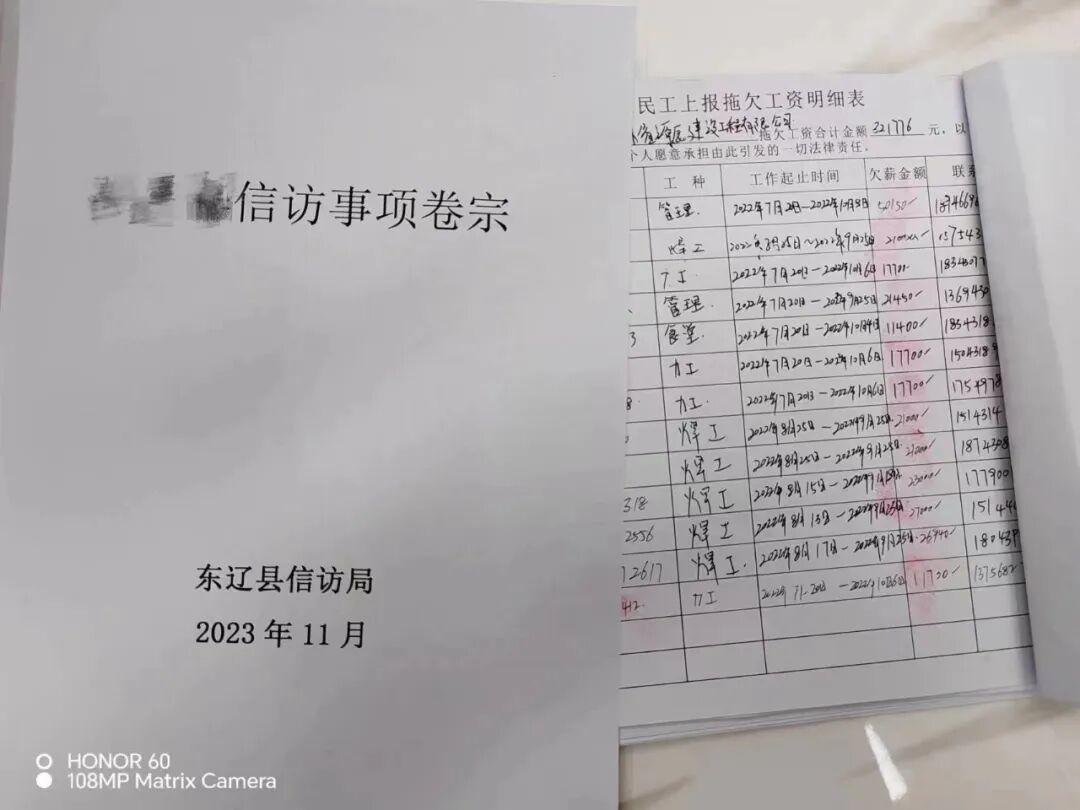 信访事项卷宗
东辽县信访局
2023年11月
民工上报拖欠工资明细表
建设工程有限公司 拖欠工资合计金额 321776 元，以
个人愿意承担由此引发的一切法律责任。
工种 工作起止时间 欠薪金额 联系
管理. 2022年7月20日—2022年10月8日 50150 1874669
焊工 2022年8月25日~2022年9月25日 157543
力工 2022年7月20日—2022年10月6日 17700 1834307
管理. 2022年7月20日—2022年9月25日 21450 1369430
3 食堂 2022年7月20日—2022年10月4日 11400 1854318
力工 2022年7月20日—2022年10月6日 17700 1504318
8 力工. 2022年7月20日—2022年10月6日 17700 1754978
焊工 2022年8月25日—2022年9月25日 21000 1514314
焊工 2022年8月25日—2022年9月25日 21000 1874308
318 焊工 2022年8月15日— 23000 177900
2556 焊工 2022年8月13日—2022年9月25日 27000 15144
12617 焊工. 2022年8月17日—2022年9月25日 26940 180439
412. 力工 11700 1375682
HONOR 60
108MP Matrix Camera